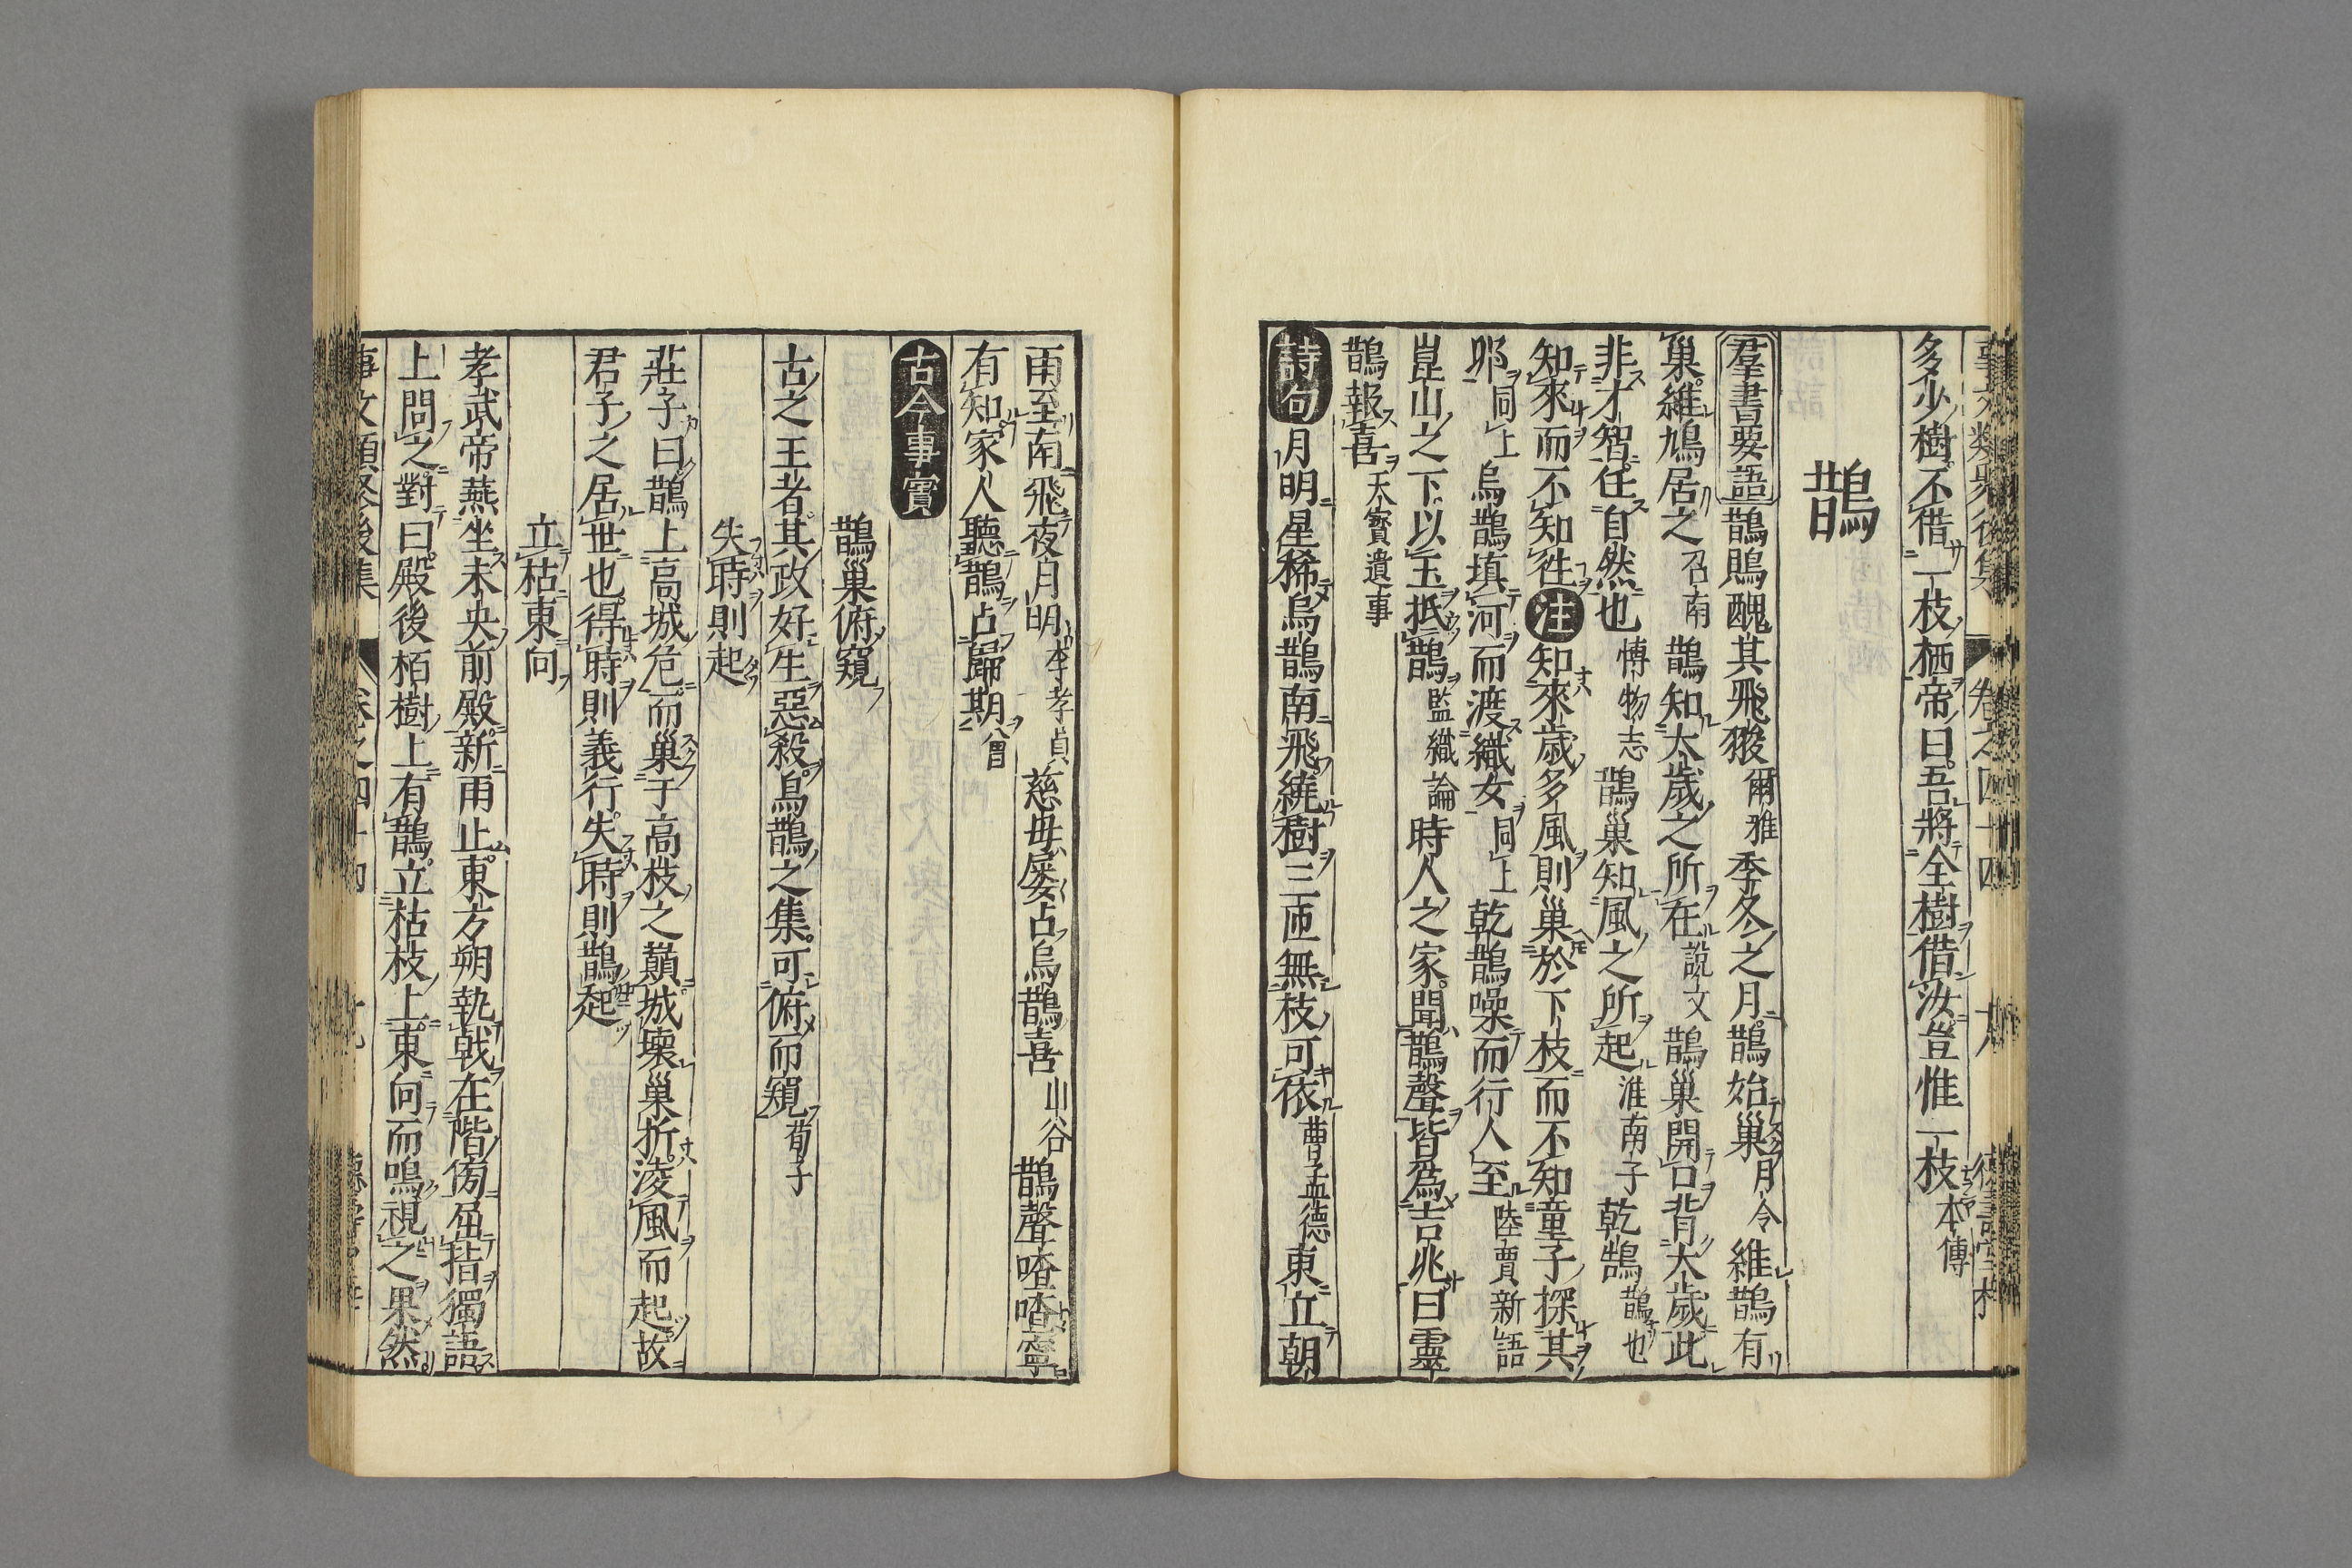 多少樹不借一枝栖帝曰吾將全樹借汝豈惟一枝本傳
鵲
羣書要語鵲鵙醜其飛翪爾雅季冬之月鵲始巢月令維鵲有
巢維鳩居之召南鵲知太歲之所在說文鵲巢開口背太歲此
非才智任自然也博物志鵲巢知風之所起淮南子乾鵠鵲也
知來而不知徃注知來歲多風則巢於下枝而不知童子探其
卵同上烏鵲填河而渡織女同上乾鵲噪而行人至陸賈新語
崑山之下以玉抵鵲監織論時人之家聞鵲聲皆爲吉兆曰靈
鵲報喜天寳遺事
詩句月明星稀烏鵲南飛繞樹三匝無枝可依曹孟德東立朝
雨至南飛夜月明李孝貞慈母屡占烏鵲喜山谷鵲聲喳喳寧
有知家人聽鵲占歸期曾
古今事實
鵲巢俯窺
古之王者其政好生惡殺烏鵲之集可俯而窺荀子
失時則起
莊子曰鵲上高城危而巢于高枝之巔城壊巢折淩風而起故
君子之居世也得時則義行失時則鵲起
立枯東向
孝武帝燕坐未央前殿新雨止東方朔執戟在階傍屈指獨語
上問之對曰殿後栢樹上有鵲立枯枝上東向而鳴視之果然